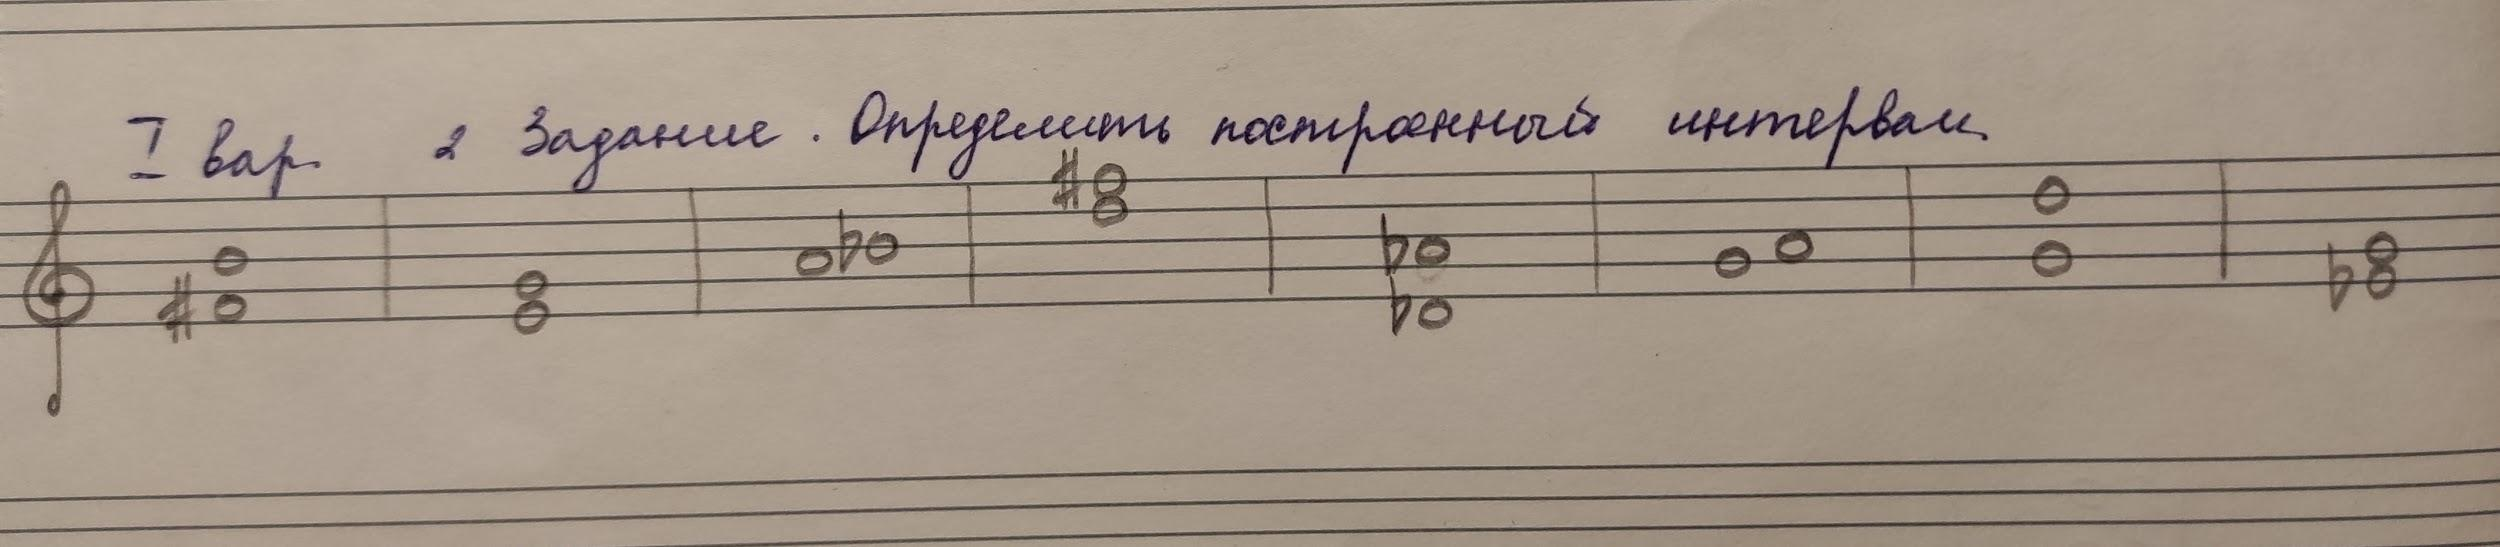 I вар. 2 Задание. Определить построенный интервал